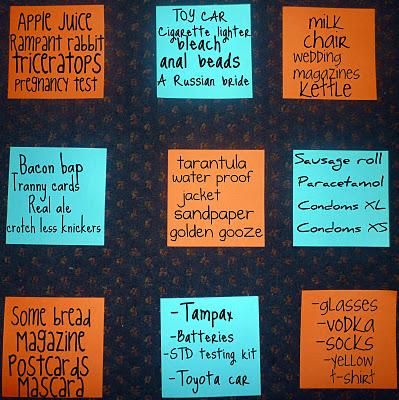 Apple Juice
Rampant rabbit
triceratops
pregnancy test
TOY CAR
Cigarette lighter
bleach
anal beads
A Russian bride
milk
chair
wedding
magazines
KETTLE
Bacon bap
Tranny cards
Real ale
crotch less knickers
tarantula
water proof
jacket
sandpaper
golden gooze
Sausage roll
Paracetamol
Condoms XL
Condoms XS
Some bread
Magazine
Postcards
Mascara
-Tampax
-Batteries
-STD testing kit
-Toyota car
-glasses
-vodka
-socks
-yellow
t-shirt